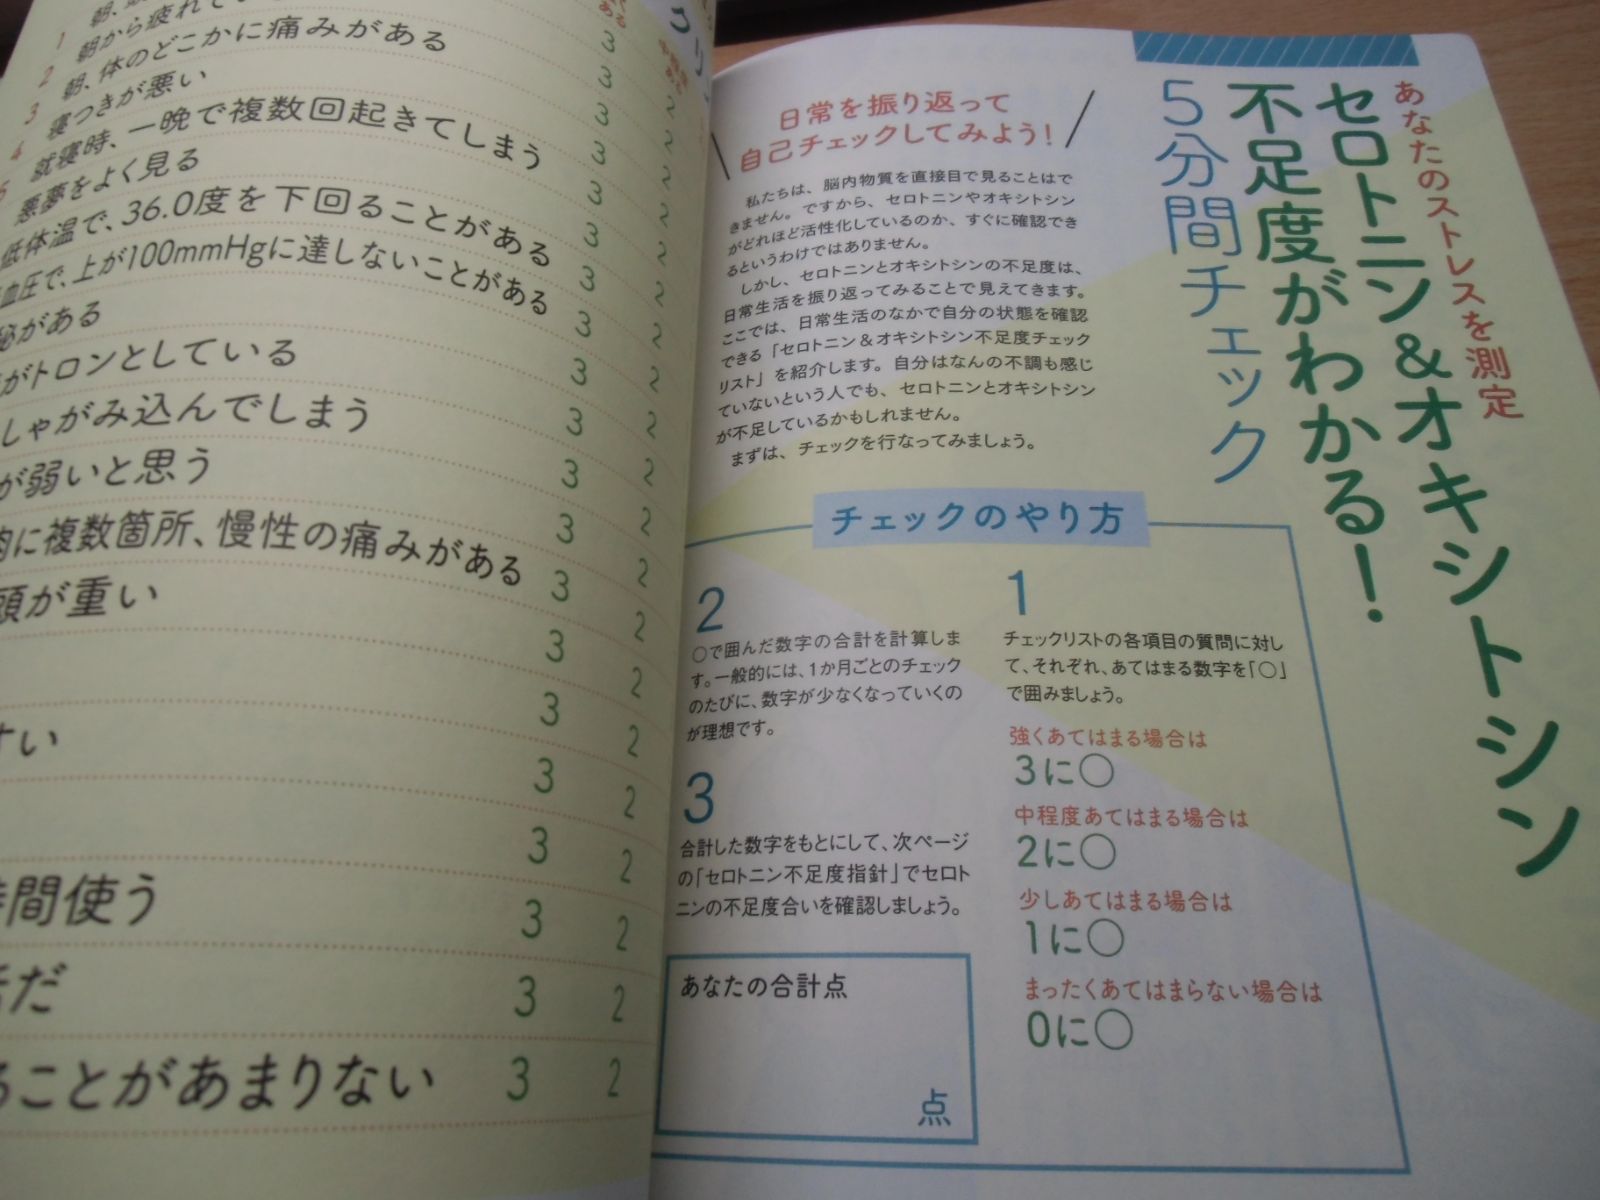 あなたのストレスを測定
セロトニン&オキシトシン
不足度がわかる!
5分間チェック
日常を振り返って
自己チェックしてみよう!
私たちは、脳内物質を直接目で見ることはで
きません。ですから、セロトニンやオキシトシン
がどれほど活性化しているのか、すぐに確認でき
るというわけではありません。
しかし、セロトニンとオキシトシンの不足度は、
日常生活を振り返ってみることで見えてきます。
ここでは、日常生活のなかで自分の状態を確認
できる「セロトニン&オキシトシン不足度チェック
リスト」を紹介します。自分はなんの不調も感じ
ていないという人でも、セロトニンとオキシトシン
が不足しているかもしれません。
まずは、チェックを行なってみましょう。
チェックのやり方
1
チェックリストの各項目の質問に対し
て、それぞれ、あてはまる数字を「○」
で囲みましょう。
強くあてはまる場合は
3に○
中程度あてはまる場合は
2に○
少しあてはまる場合は
1に○
まったくあてはまらない場合は
0に○
2
○で囲んだ数字の合計を計算しま
す。一般的には、1か月ごとのチェック
のたびに、数字が少なくなっていくの
が理想です。
3
合計した数字をもとにして、次ページ
の「セロトニン不足度指針」でセロト
ニンの不足度合いを確認しましょう。
あなたの合計点
点
1 朝から疲れてい
2 朝、体のどこかに痛みがある 3
3 寝つきが悪い 3 2
4 就寝時、一晩で複数回起きてしまう 3 2
5 悪夢をよく見る 3 2
低体温で、36.0度を下回ることがある 3 2
血圧で、上が100mmHgに達しないことがある 3 2
秘がある 3 2
がトロンとしている 3 2
しゃがみ込んでしまう 3 2
が弱いと思う 3 2
肉に複数箇所、慢性の痛みがある 3 2
頭が重い 3 2
3 2
すい 3 2
3 2
時間使う 3 2
活だ 3 2
ることがあまりない 3 2